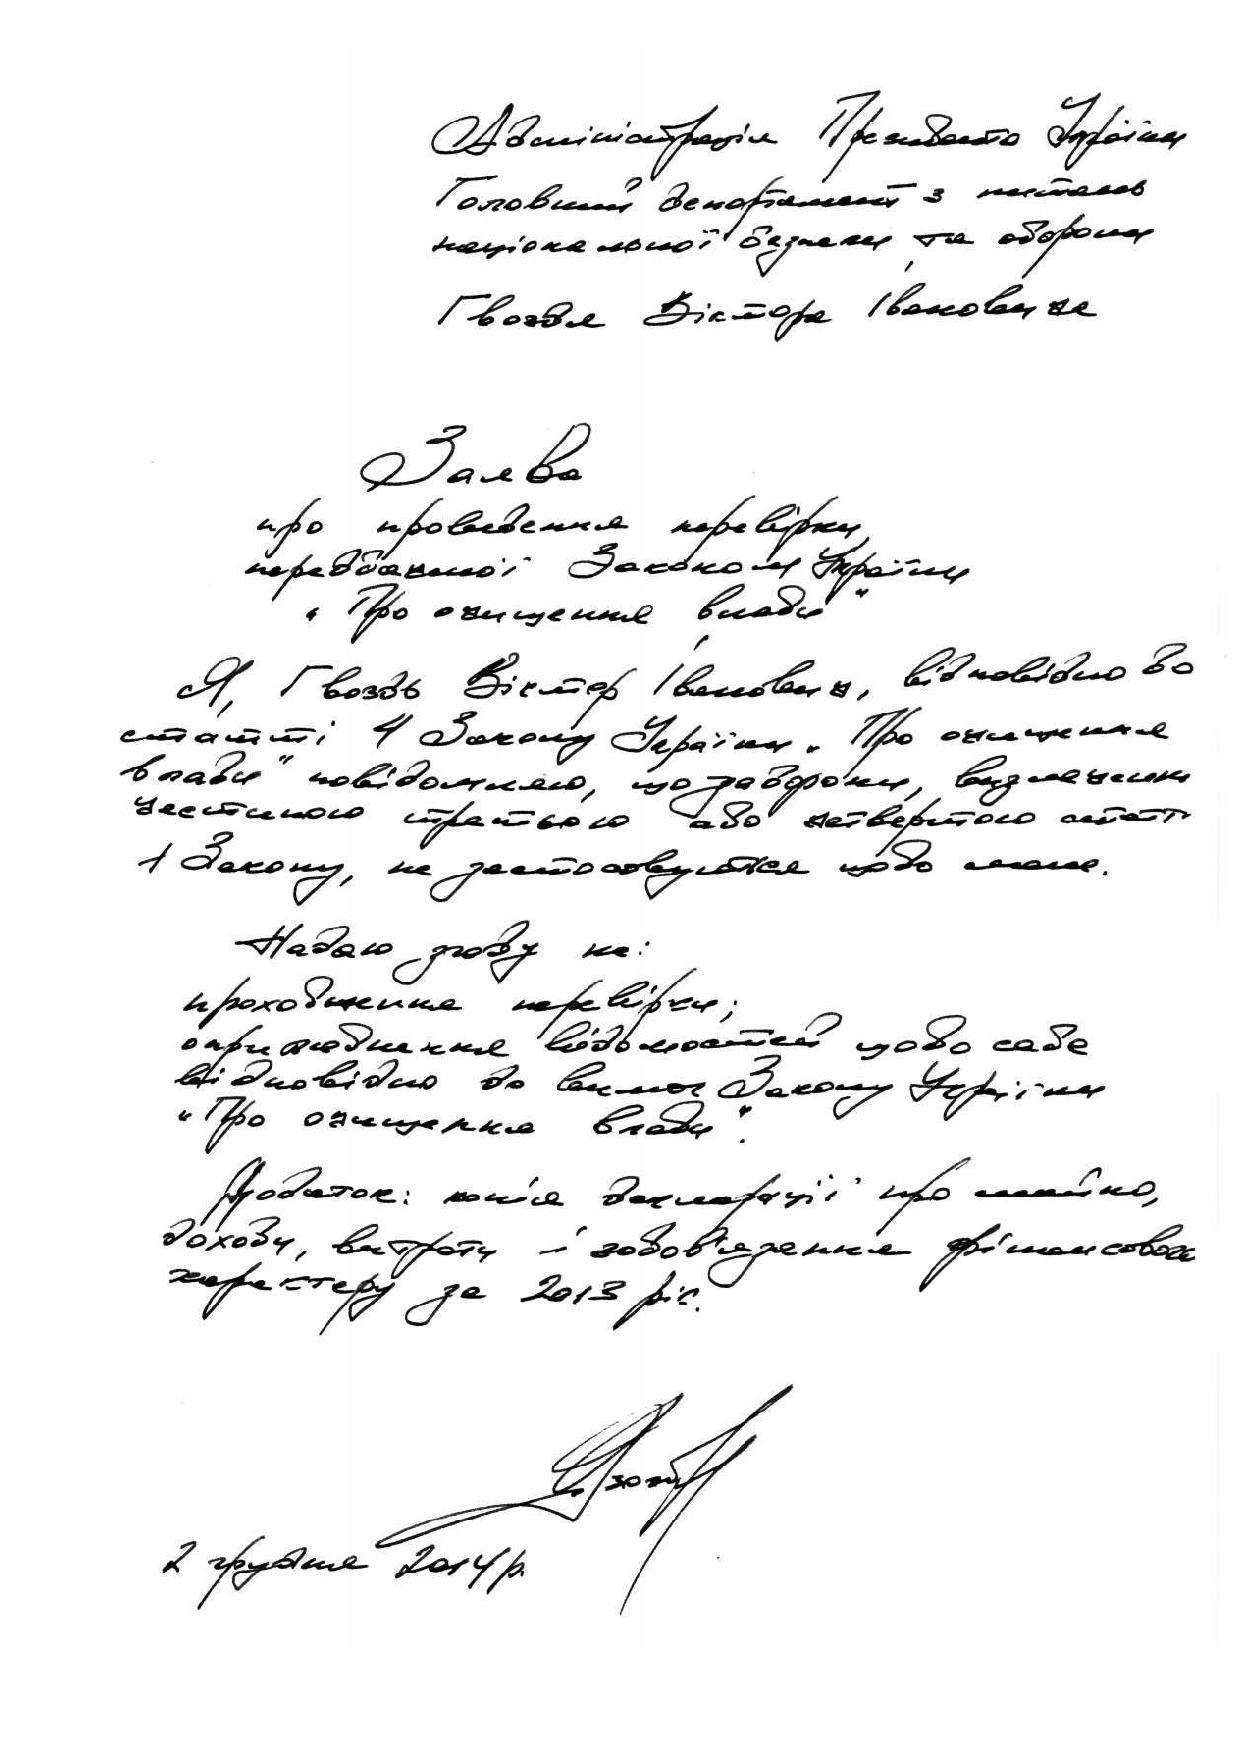 Адміністрація Президента України
Головний департамент з питань
національної безпеки та оборони
Гвоздя Віктора Івановича
Заява
про проведення перевірки,
передбаченої Законом України
„Про очищення влади"
Я, Гвоздь Віктор Іванович, відповідно до
статті 4 Закону України „Про очищення
влади" повідомляю, що заборони, визначені
частиною третьою або четвертою статті
1 Закону, не застосовуються щодо мене.
Надаю згоду на:
проходження перевірки;
оприлюднення відомостей щодо себе
відповідно до вимог Закону України
„Про очищення влади".
Додаток: копія декларації про майно,
доходи, витрати і зобов'язання фінансового
характеру за 2013 рік.
2 грудня 2014 р.